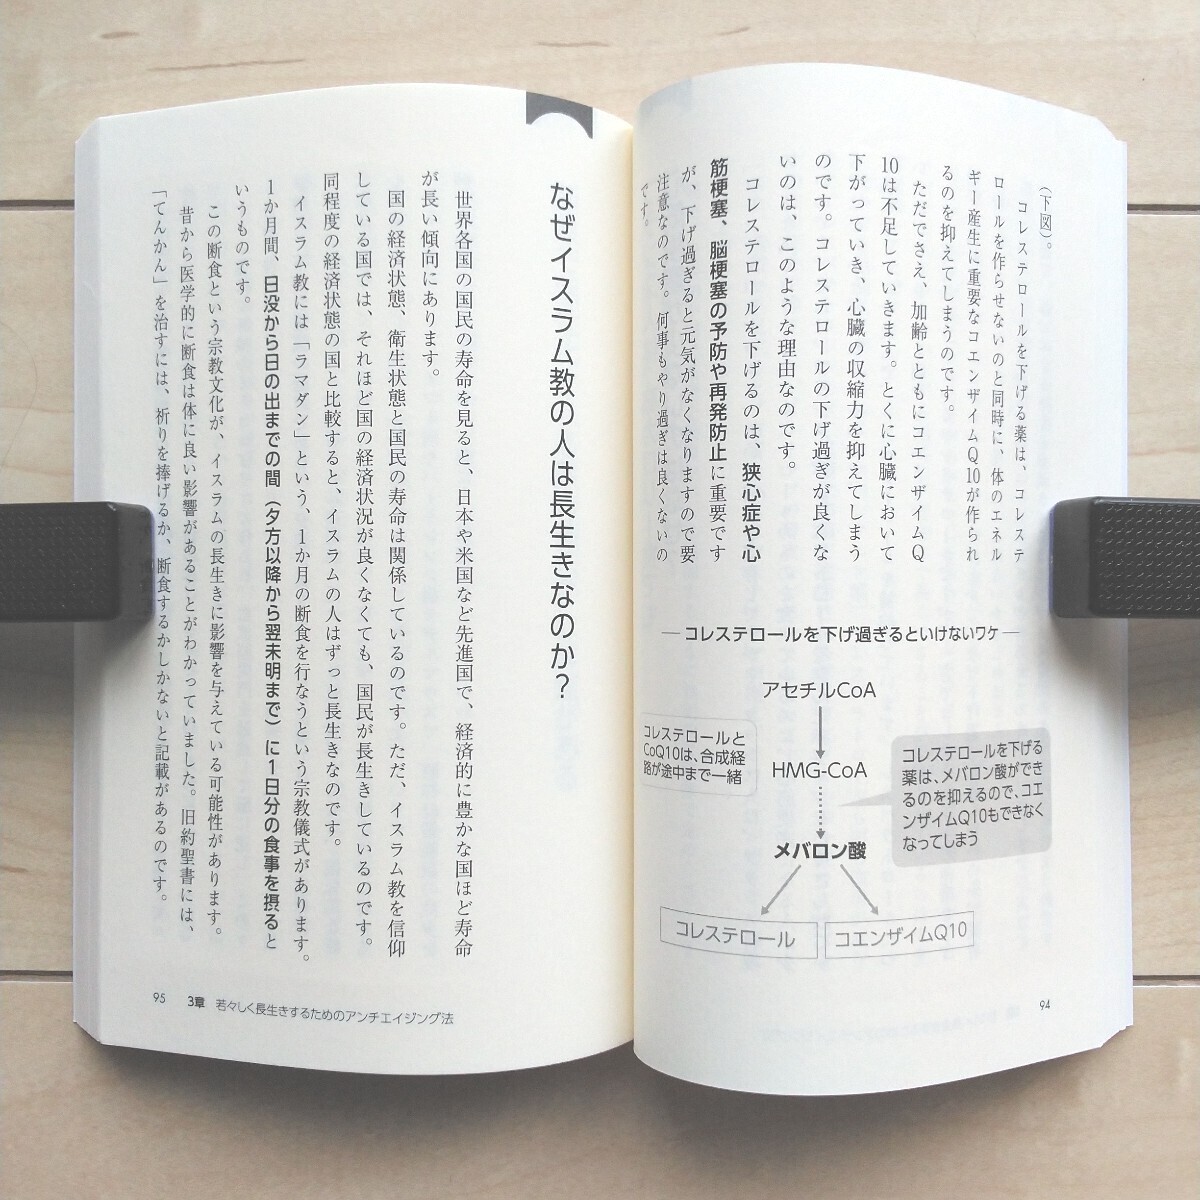 (下図)。
コレステロールを下げる薬は、コレステ
ロールを作らせないのと同時に、体のエネル
ギー産生に重要なコエンザイムQ10が作られ
るのを抑えてしまうのです。
ただでさえ、加齢とともにコエンザイムQ
10は不足していきます。とくに心臓において
下がっていき、心臓の収縮力を抑えてしまう
のです。コレステロールの下げ過ぎが良くな
いのは、このような理由なのです。
コレステロールを下げるのは、狭心症や心
筋梗塞、脳梗塞の予防や再発防止に重要です
が、下げ過ぎると元気がなくなりますので要
注意なのです。何事もやり過ぎは良くないの
です。
コレステロールを下げ過ぎるといけないワケ
アセチルCoA
コレステロールと
CoQ10は、合成経
路が途中まで一緒
HMG-CoA
コレステロールを下げる
薬は、メバロン酸ができ
るのを抑えるので、コエ
ンザイムQ10もできなく
なってしまう
メバロン酸
コレステロール
コエンザイムQ10
94
なぜイスラム教の人は長生きなのか?
世界各国の国民の寿命を見ると、日本や米国など先進国で、経済的に豊かな国ほど寿命
が長い傾向にあります。
国の経済状態、衛生状態と国民の寿命は関係しているのです。ただ、イスラム教を信仰
している国では、それほど国の経済状況が良くなくても、国民が長生きしているのです。
同程度の経済状態の国と比較すると、イスラムの人はずっと長生きなのです。
イスラム教には「ラマダン」という、1か月の断食を行なうという宗教儀式があります。
1か月間、日没から日の出までの間(夕方以降から翌未明まで)に1日分の食事を摂ると
いうものです。
この断食という宗教文化が、イスラムの長生きに影響を与えている可能性があります。
昔から医学的に断食は体に良い影響があることがわかっていました。旧約聖書には、
「てんかん」を治すには、祈りを捧げるか、断食するかしかないと記載があるのです。
95 3章 若々しく長生きするためのアンチエイジング法